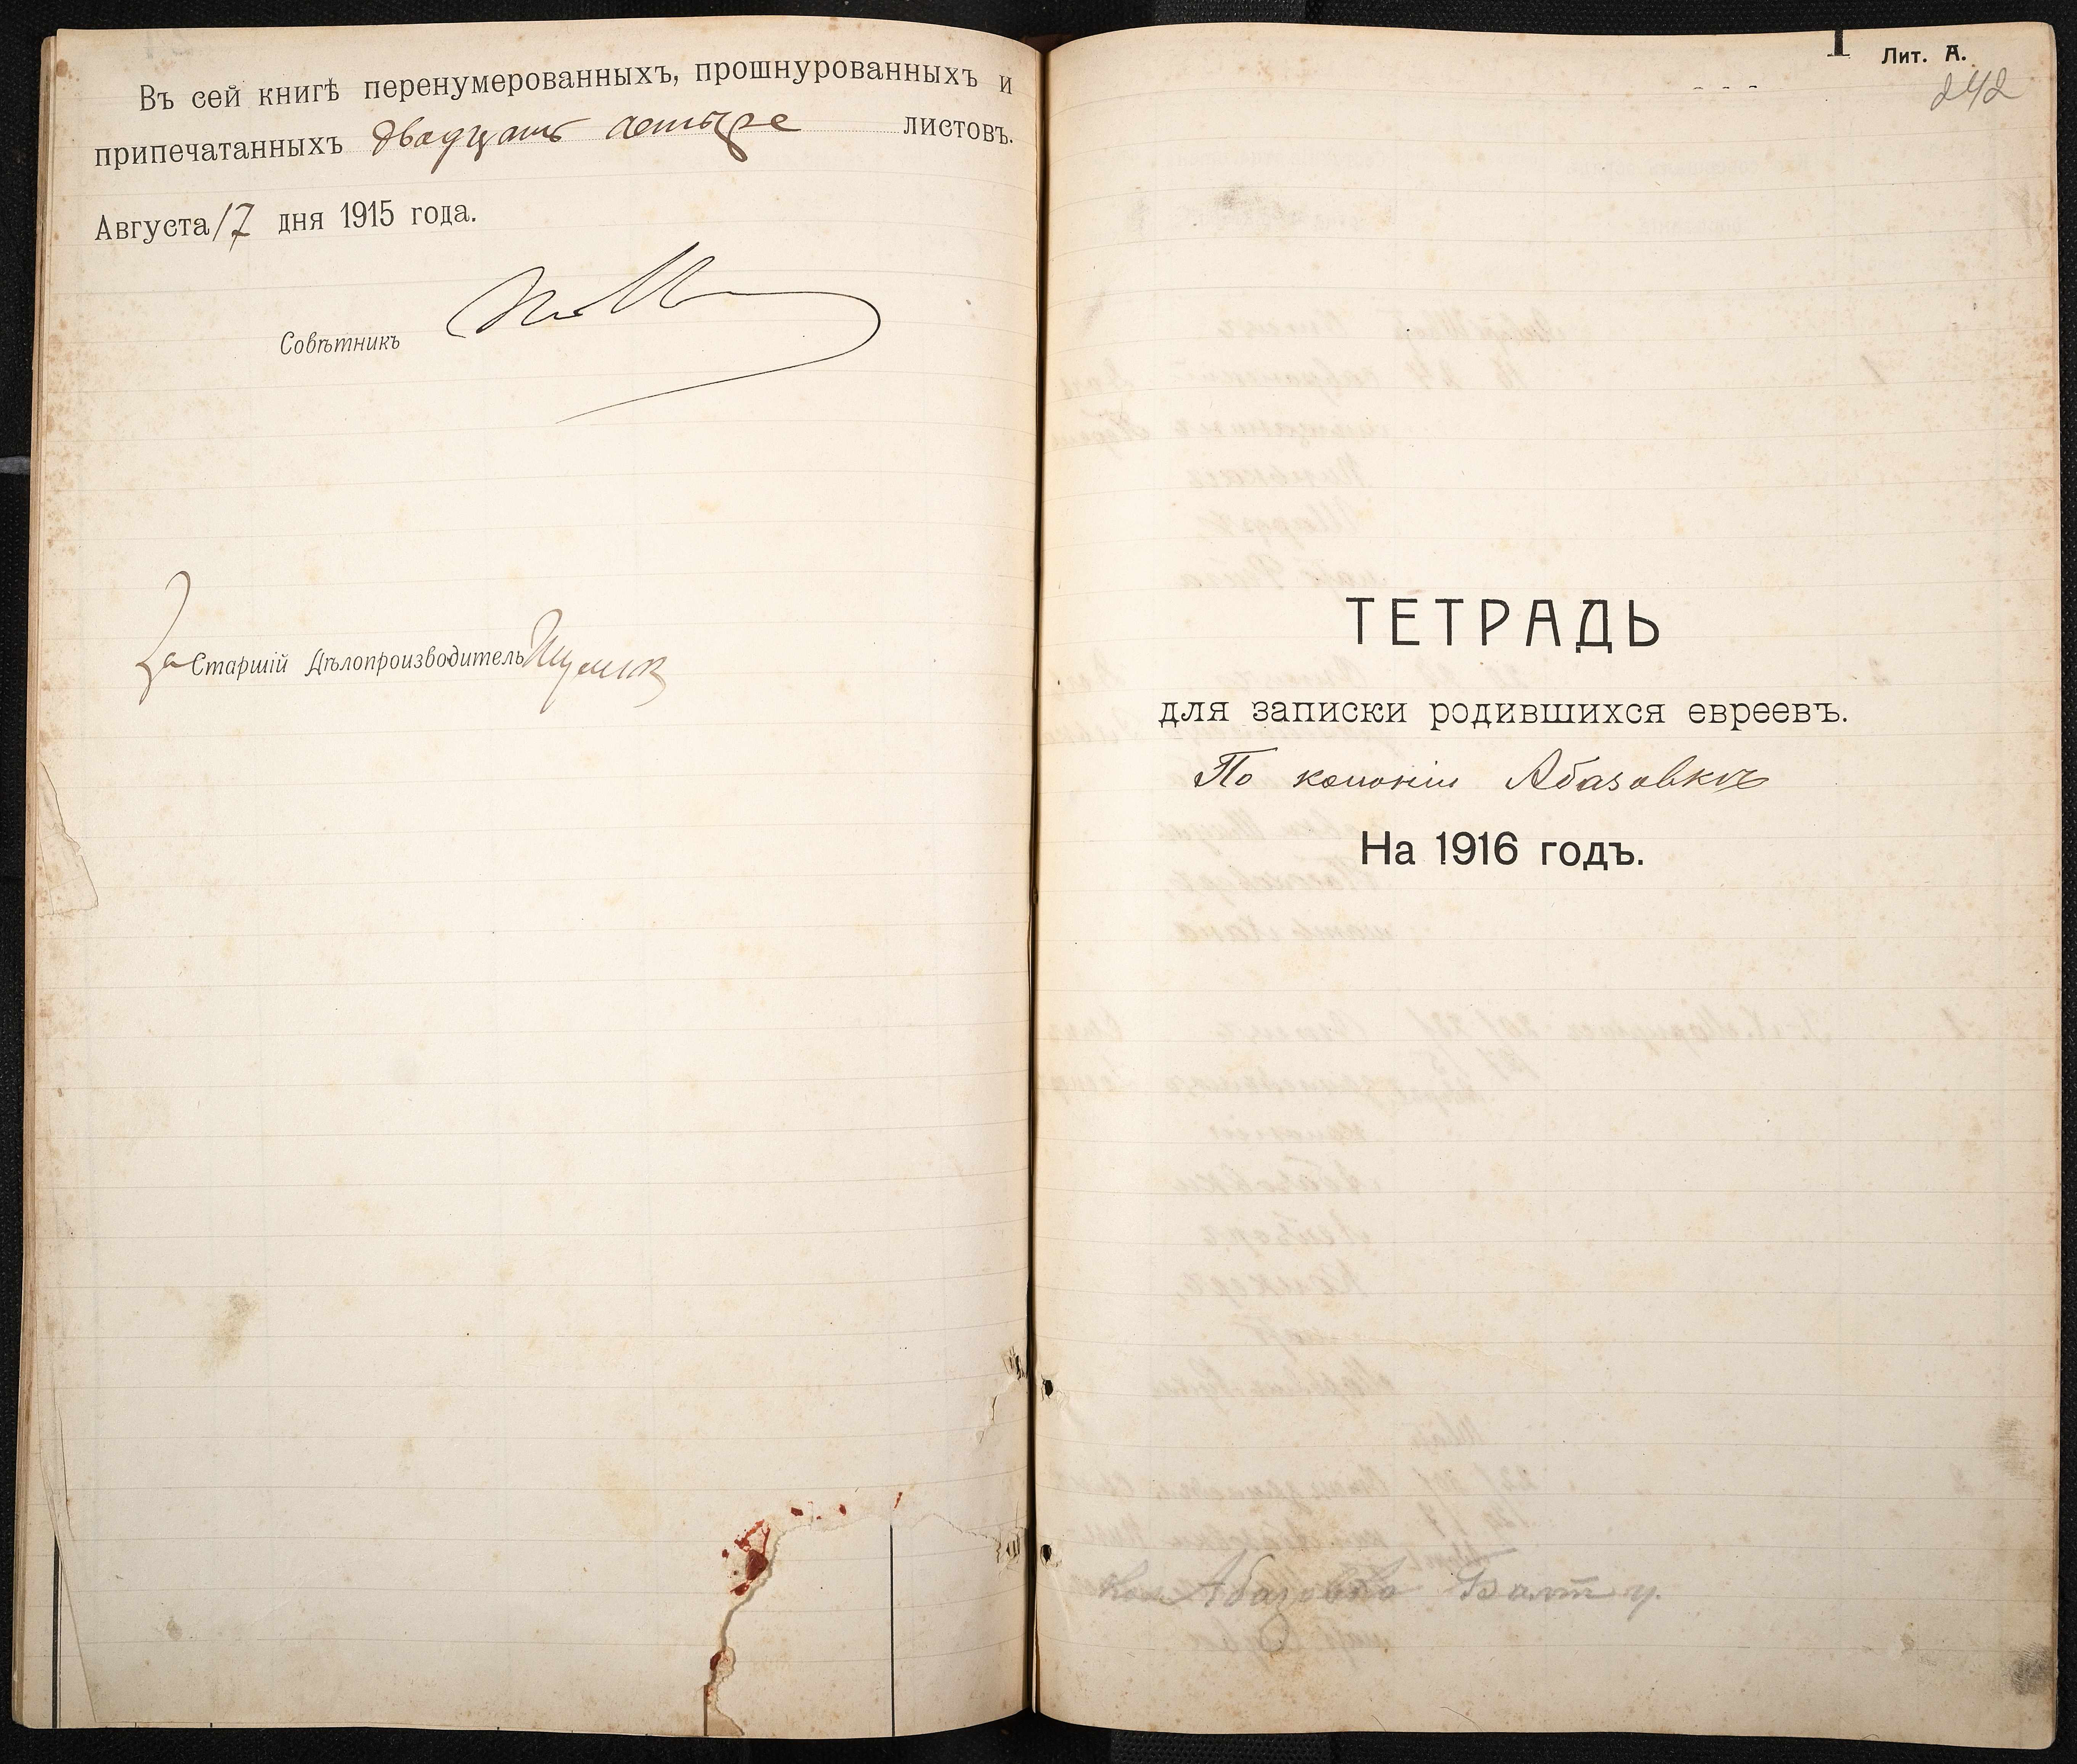 Въ сей книгѣ перенумерованныхъ, прошнурованныхъ и
припечатанныхъ двадцать четыре листовъ.
Августа 17 дня 1915 года.
Совѣтникъ
За Старшій Дѣлопроизводитель
1 Лит. А.
242
ТЕТРАДЬ
для записки родившихся евреевъ.
По колоніи Абазовкѣ
На 1916 годъ.
Кол Абазовка Балт у.